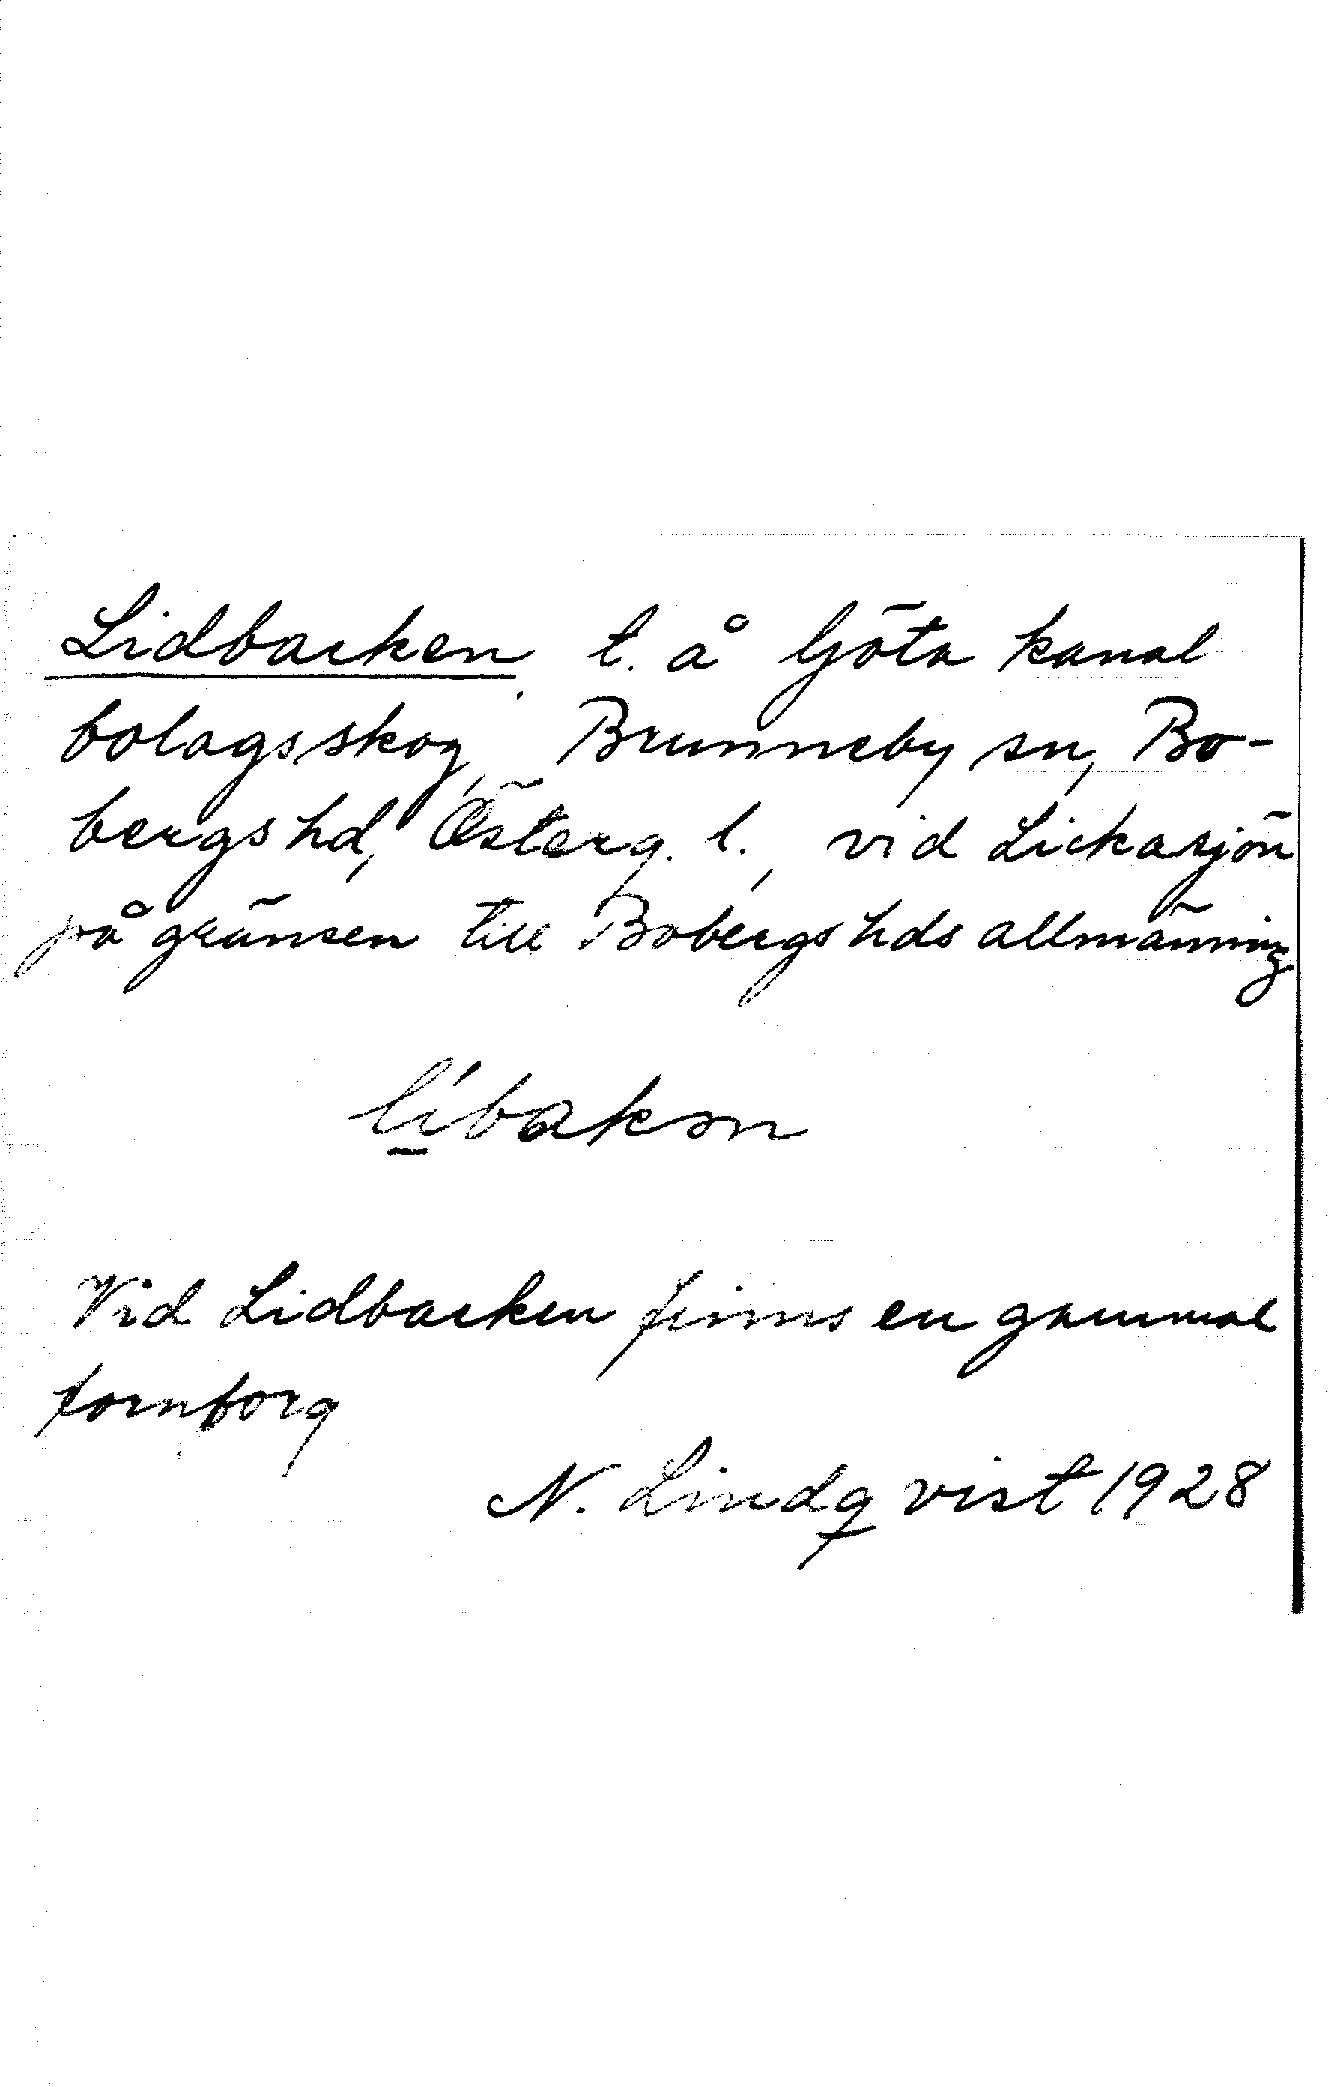 Lidbacken t. å Göta kanal
bolagsskog, Brunneby sn, Bo-
bergs hd, Österg. l., vid Lickasjön
på gränsen till Bobergs hds allmänning
lı̱́bakən
Vid Lidbacken finns en gammal
fornborg
N. Lindqvist 1928